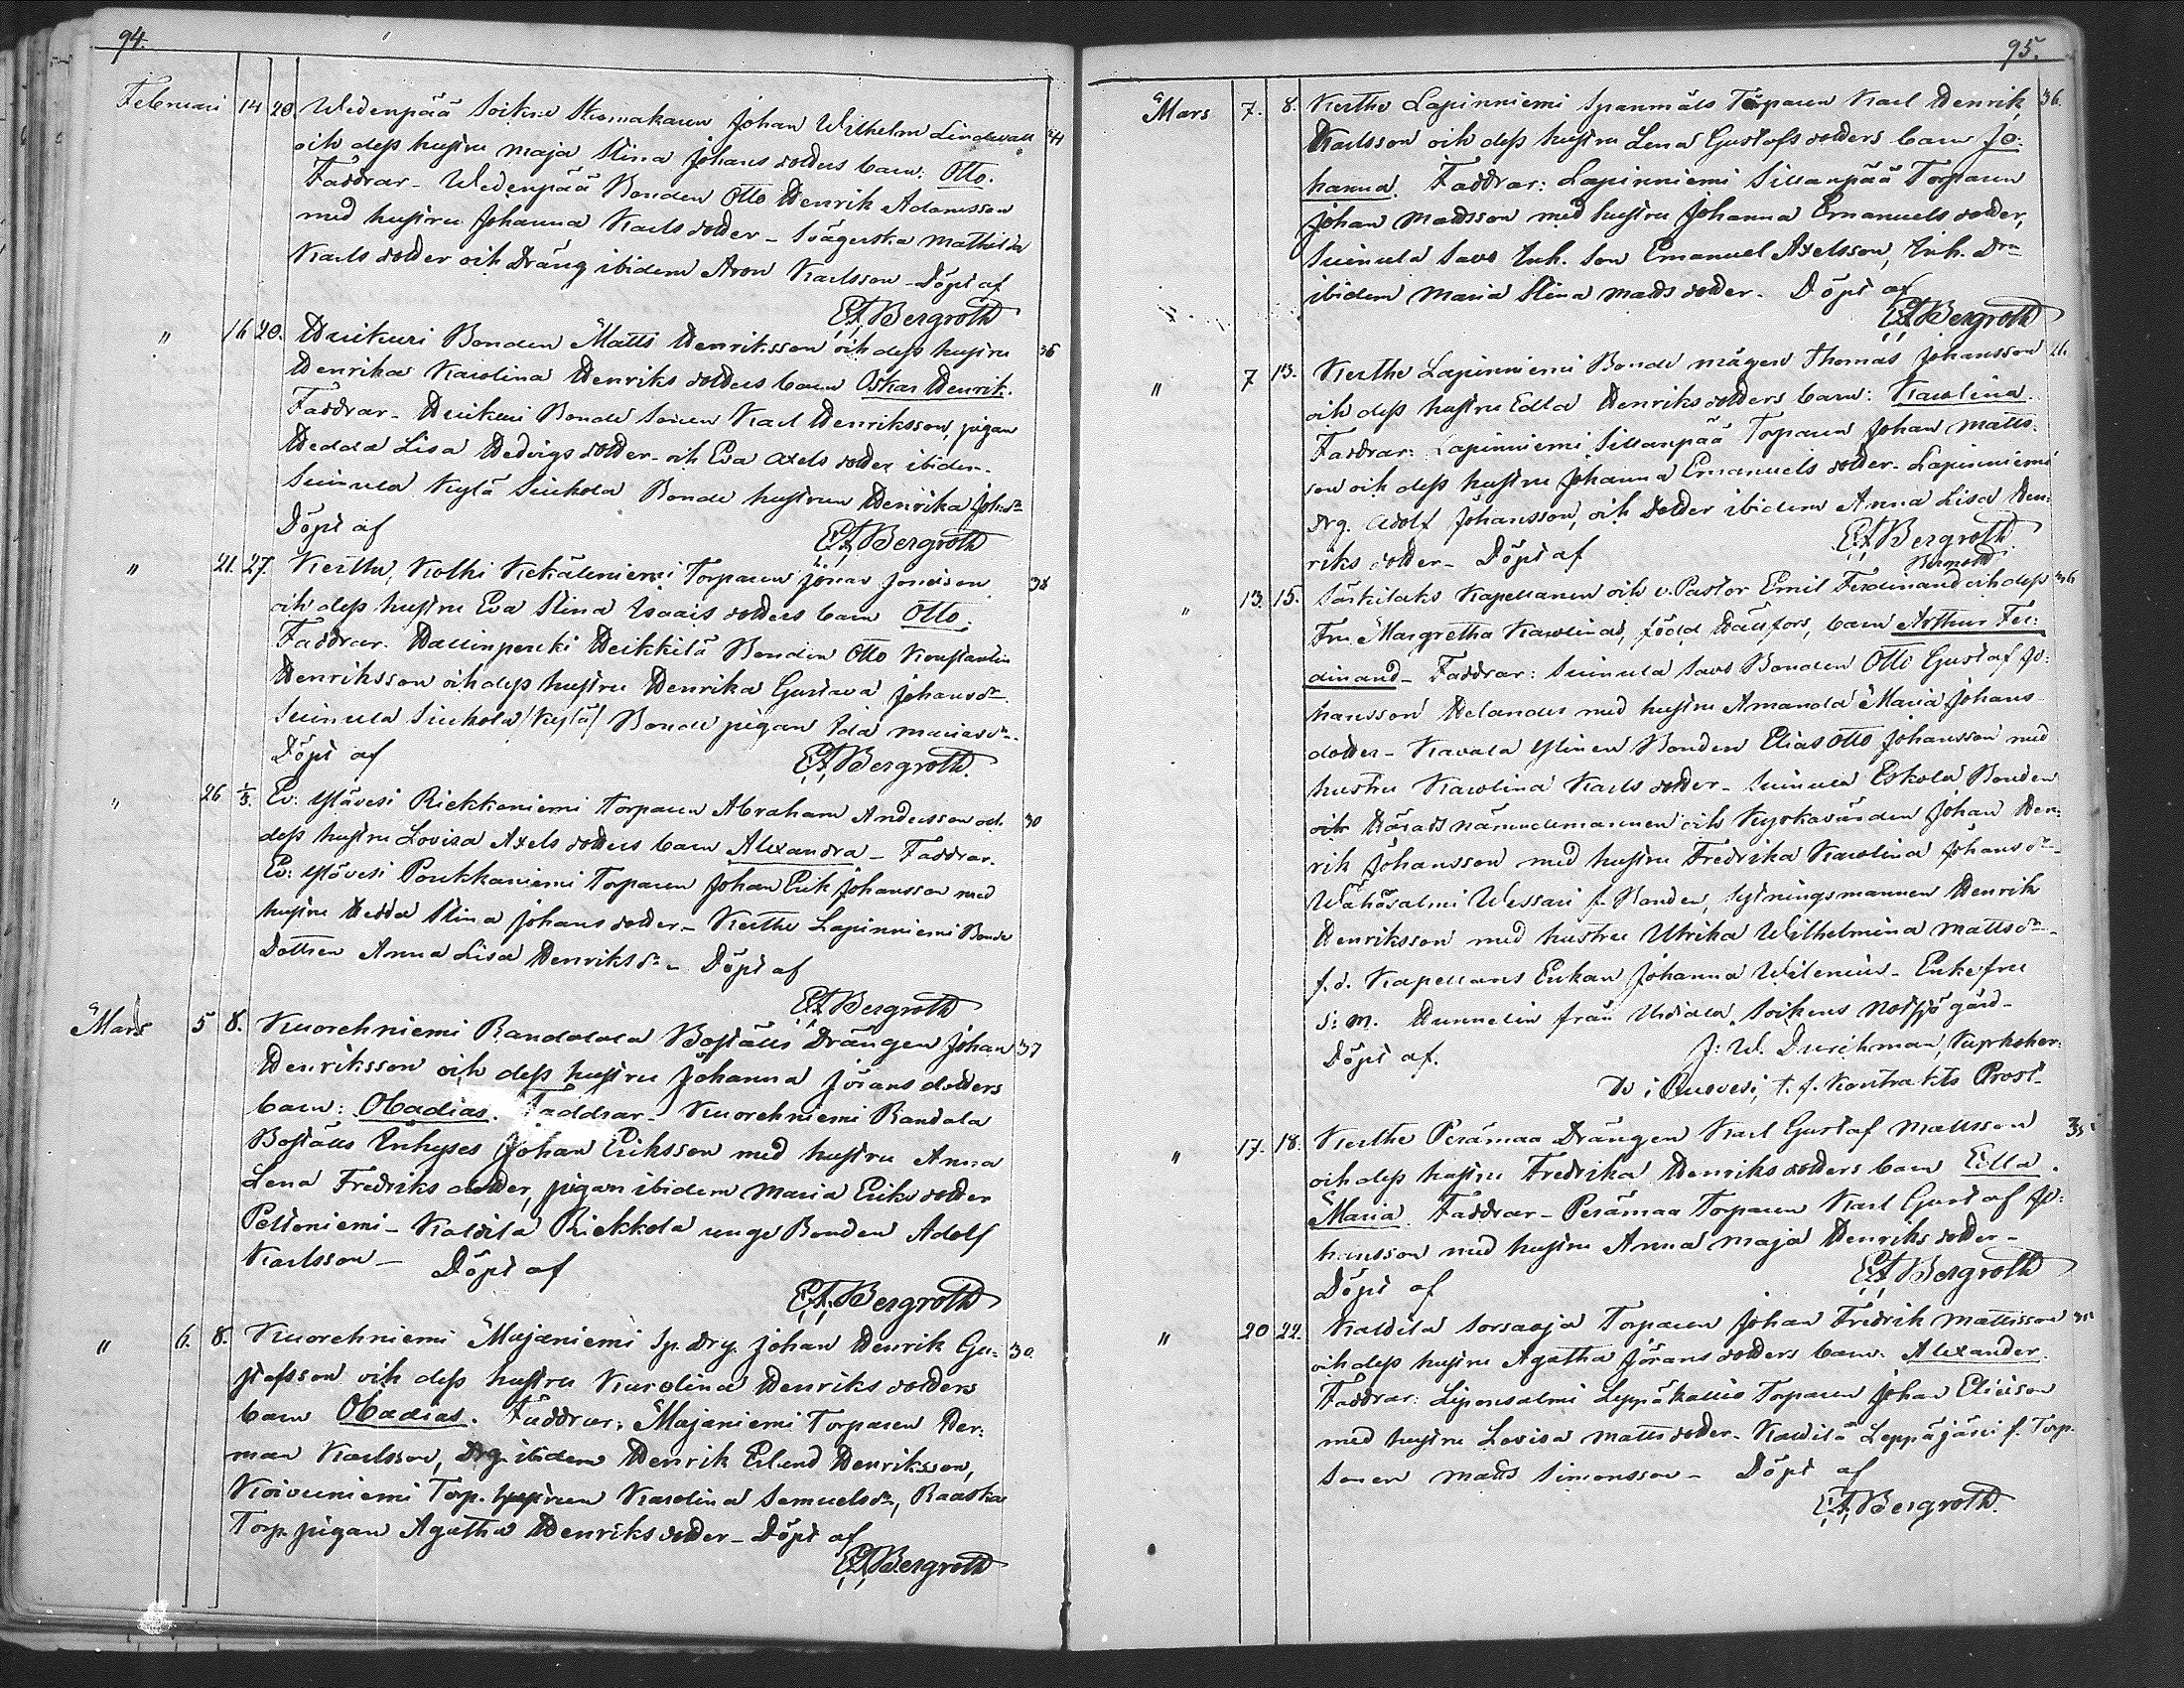 94.
Februari 14 20. Wedenpää Sockne Skomakaren Johan Wilhelm Lindewall 41
och dess hustru Maja Stina Johans dotters barn: Otto.
Faddrar - Wedenpää Bonden Otto Henrik Adamsson
med hustru Johanna Karls dotter - Svägerska Mathilda
Karls dotter och Dräng ibidem Aron Karlsson - Döpt af
E.F. Bergroth
" 16 20. Huikuri Bonden Matts Henriksson och dess hustru 36
Henrika Karolina Henriks dotters barn Oskar Henrik.
Faddrar - Huikuri Bonde Sonen Karl Henriksson, pigan
Hedda Lisa Hedvigs dotter - och Eva Axels dotter ibidem.
Suinula Kylä Siukola Bonde hustrun Henrika Johsdr
Döpt af
E.F. Bergroth
" 21. 27. Kerttu, Kolhi Kekäleniemi Torparen Jonas Jonasson 38
och dess hustru Eva Stina Isaaks dotters barn Otto.
Faddrar. Hallinpenki Heikkilä Bonden Otto Konstantin
Henriksson och dess hustru Henrika Gustava Johansdr
Suinula Siukola (Kylä) Bonde pigan Ida Mariasdr.
Döpt af
E.F. Bergroth.
" 26 1/3. Ev: Ylävesi Riekkoniemi Torparen Abraham Andersson och 30
dess hustru Lovisa Axels dotters barn Alexandra - Faddrar.
Ev: Ylövesi Poukkaniemi Torparen Johan Erik Johansson med
hustru Hedda Stina Johans dotter - Kerttu Lapinniemi Bonde
Dottren Anna Lisa Henriksdr - Döpt af
E.F. Bergroth
Mars 5 8. Kuorehniemi Randalala Boställs Drängen Johan 37
Henriksson och dess hustru Johanna Jörans dotters
barn: Obadias. Faddrar - Kuorehniemi Randala
Boställs Inhyses Johan Eriksson med hustru Anna
Lena Fredriks dotter, pigan ibidem Maria Eriks dotter
Peltoniemi - Kaldila Riekkola unge Bonden Adolf
Karlsson - Döpt af
E.F. Bergroth
" 6. 8. Kuorehniemi Majaniemi Sp. drg. Johan Henrik Gu- 30.
stafsson och dess hustru Karolina Henriks dotters
barn Obadias. Faddrar: Majaniemi Torparen Her-
man Karlsson, Drg. ibidem Henrik Erlund Henriksson,
Koivuniemi Torp. hustrun Karolina Samuelsdr, Raaska
Torp. pigan Agatha Henriks dotter - Döpt af
E.F. Bergroth
95.
Mars 7. 8. Kerttu Lapinniemi Spanmåls Torparen Karl Henrik 36.
Karlsson och dess hustru Lena Gustafs dotters barn Jo-
hanna. Faddrar: Lapinniemi Sillanpää Torparen
Johan Madsson med hustru Johanna Emanuels dotter,
Suinula Savo Inh. son Emanuel Axelsson, Inh. Dr
ibidem Maria Stina Mads dotter. Döpt af
E.F. Bergroth
" 7 13. Kerttu Lapinniemi Bonde mågen Thomas Johansson 26.
och dess hustru Edla Henriks dotters barn: Karolina.
Faddrar: Lapinniemi Sillanpää Torparen Johan Matts-
son och dess hustru Johanna Emanuels dotter. Lapinniemi
drg. Adolf Johansson, och Dotter ibidem Anna Lisa Hen-
riks dotter - Döpt af
E.F. Bergroth
Bergroth
" 13. 15. Särkilaks Kapellanen och v. Pastor Emil Ferdinand och dess 36
Fru Margretha Karolina, född Hällfors, barn Arthur Fer-
dinand - Faddrar: Suinula Savo Bonden Otto Gustaf Jo-
hansson Helander med hustru Amanda Maria Johans
dotter - Kavala Ylinen Bonden Elias Otto Johansson med
hustru Karolina Karls dotter - Suinula Eskola Bonden
och Härads nämndemannen och Kyrkovärden Johan Hen-
rik Johansson med hustru Fredrika Karolina Johansdr
Wähäsalmi Wessari f. Bonden, Sytningsmannen Henrik
Henriksson med hustru Ulrika Wilhelmina Mattsdr
f.d. Kapellans Enkan Johanna Wilenius - Enkefru
S: M. Hummelin från Urdiala Sockens Notsjö gård -
Döpt af. J: W. Durchman, Kyrkoher-
de i Ruovesi, t. f. Kontrakts Prost.
" 17. 18. Kerttu Perämaa Drängen Karl Gustaf Mattsson 35
och dess hustru Fredrika Henriks dotters barn Edla
Maria. Faddrar - Perämaa Torparen Karl Gustaf Jo-
hansson med hustru Anna Maja Henriks dotter -
Döpt af
E.F. Bergroth
" 20 22. Kaldila Sorsaoja Torparen Johan Fredrik Mattsson
och dess hustru Agatha Jörans dotters barn. Alexander.
Faddrar: Liponsalmi Leppäkallio Torparen Johan Eliasson
med hustru Lovisa Matts dotter - Kaldila Leppäjärvi f. Torp.
Sonen Matts Simonsson - Döpt af
E.F. Bergroth.